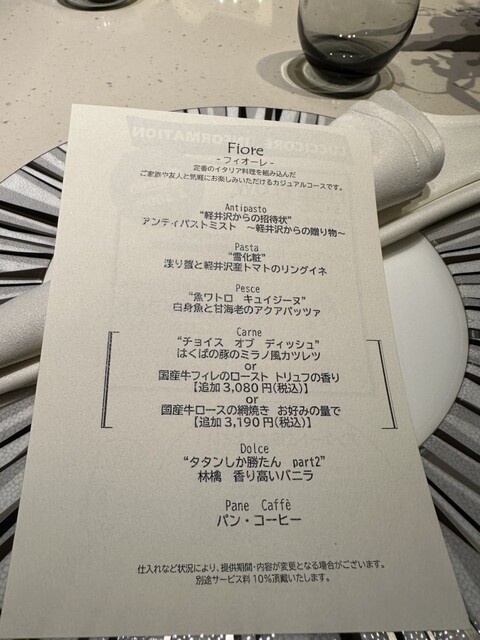 Fiore
-フィオーレ-
定番のイタリア料理を組み込んだ
ご家族や友人と気軽にお楽しみいただけるカジュアルコースです。
Antipasto
“軽井沢からの招待状”
アンティパストミスト ～軽井沢からの贈り物～
Pasta
“雪化粧”
渡り蟹と軽井沢産トマトのリングイネ
Pesce
“魚ワトロ キュイジーヌ”
白身魚と甘海老のアクアパッツァ
Carne
“チョイス オブ ディッシュ”
はくばの豚のミラノ風カツレツ
or
国産牛フィレのロースト トリュフの香り
【追加3,080円(税込)】
or
国産牛ロースの網焼き お好みの量で
【追加3,190円(税込)】
Dolce
“タタンしか勝たん part2”
林檎 香り高いバニラ
Pane Caffè
パン・コーヒー
仕入れなど状況により、提供期間・内容が変更となる場合がございます。
別途サービス料10%頂戴いたします。